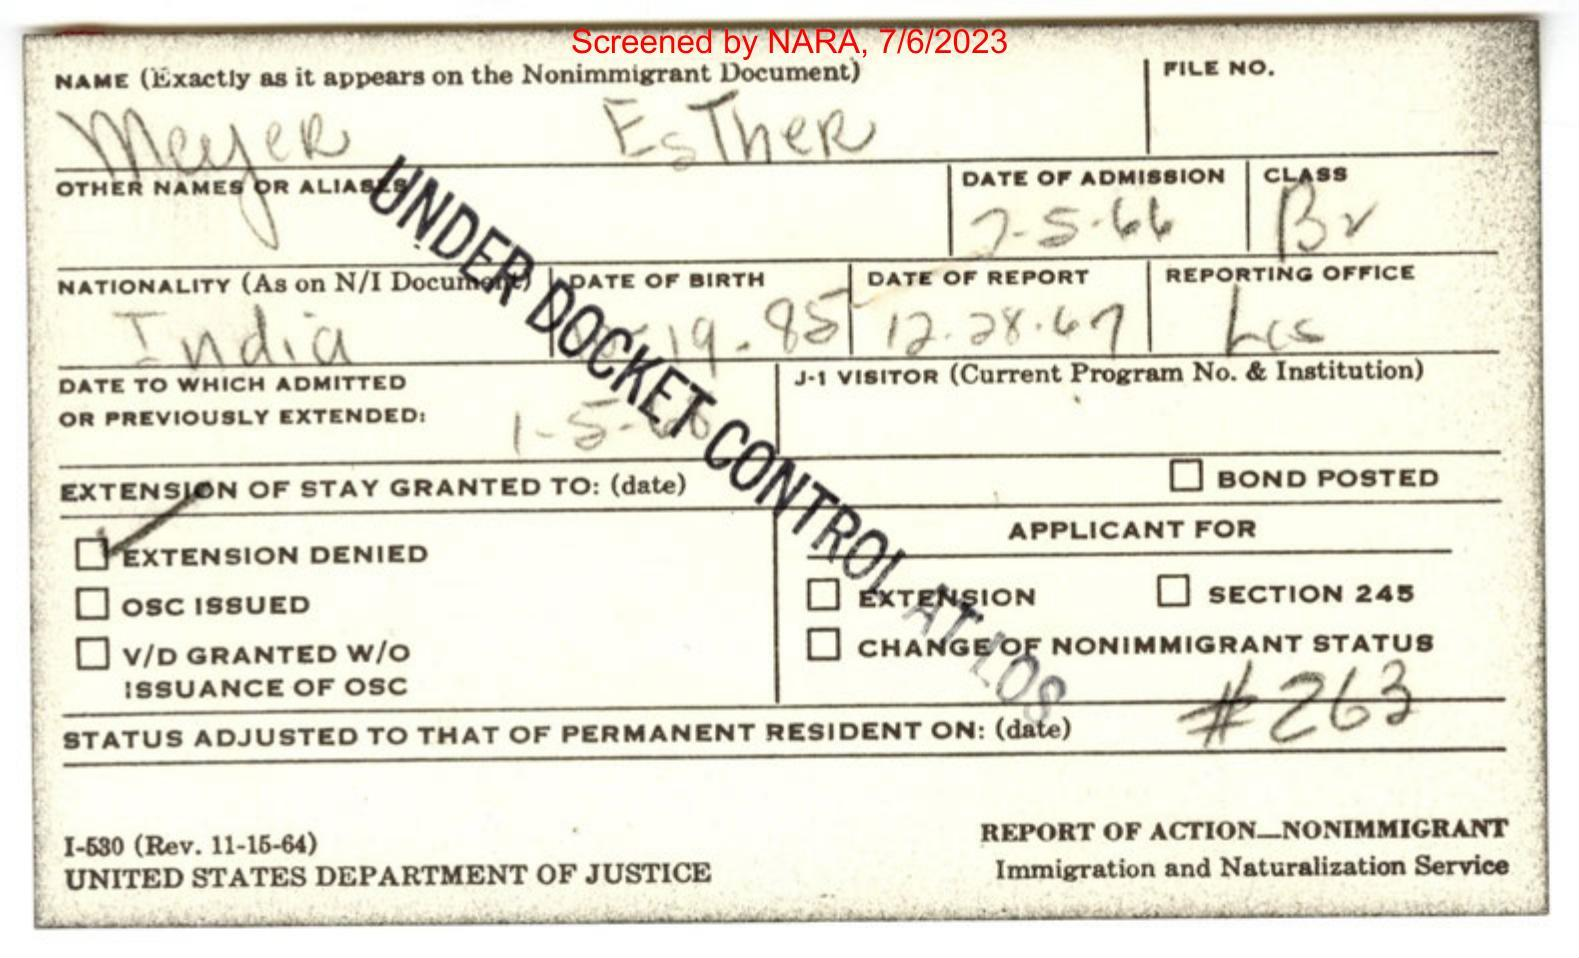 Screened by NARA, 7/6/2023
NAME (Exactly as it appears on the Nonimmigrant Document)
FILE NO.
Meyer EsTher
OTHER NAMES OR ALIASES
DATE OF ADMISSION
CLASS
7-5-66
Bv
NATIONALITY (As on N/I Document)
DATE OF BIRTH
DATE OF REPORT
REPORTING OFFICE
India
19.85
12.28.67
Los
DATE TO WHICH ADMITTED
OR PREVIOUSLY EXTENDED:
1-5-
J-1 VISITOR (Current Program No. & Institution)
EXTENSION OF STAY GRANTED TO: (date)
BOND POSTED
EXTENSION DENIED
OSC ISSUED
V/D GRANTED W/O
ISSUANCE OF OSC
APPLICANT FOR
EXTENSION
SECTION 245
CHANGE OF NONIMMIGRANT STATUS
UNDER DOCKET CONTROL AT LOS
#263
STATUS ADJUSTED TO THAT OF PERMANENT RESIDENT ON: (date)
I-530 (Rev. 11-15-64)
UNITED STATES DEPARTMENT OF JUSTICE
REPORT OF ACTION—NONIMMIGRANT
Immigration and Naturalization Service